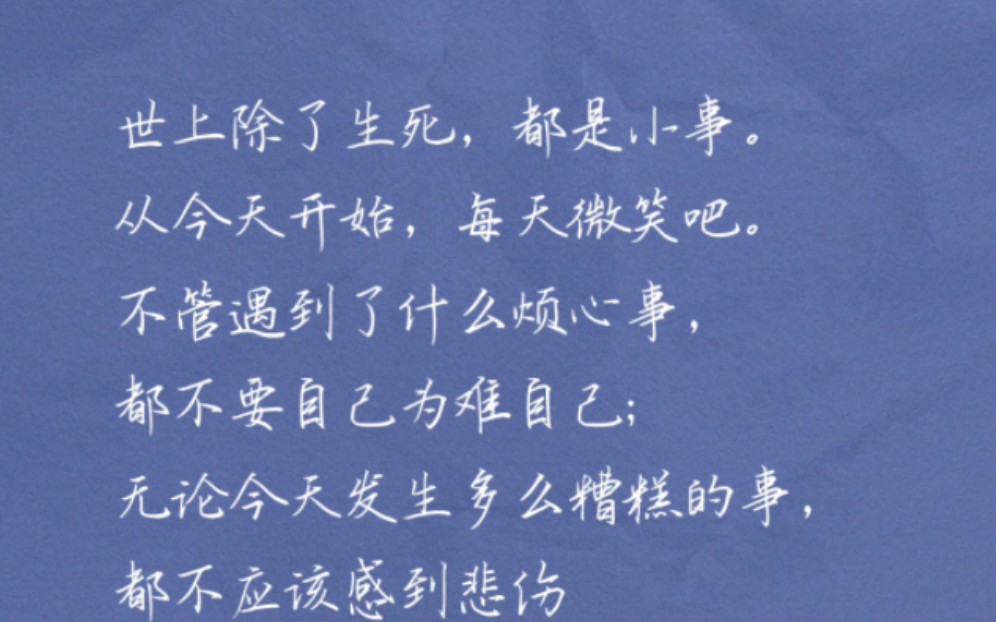 世上除了生死，都是小事。
从今天开始，每天微笑吧。
不管遇到了什么烦心事，
都不要自己为难自己；
无论今天发生多么糟糕的事，
都不应该感到悲伤